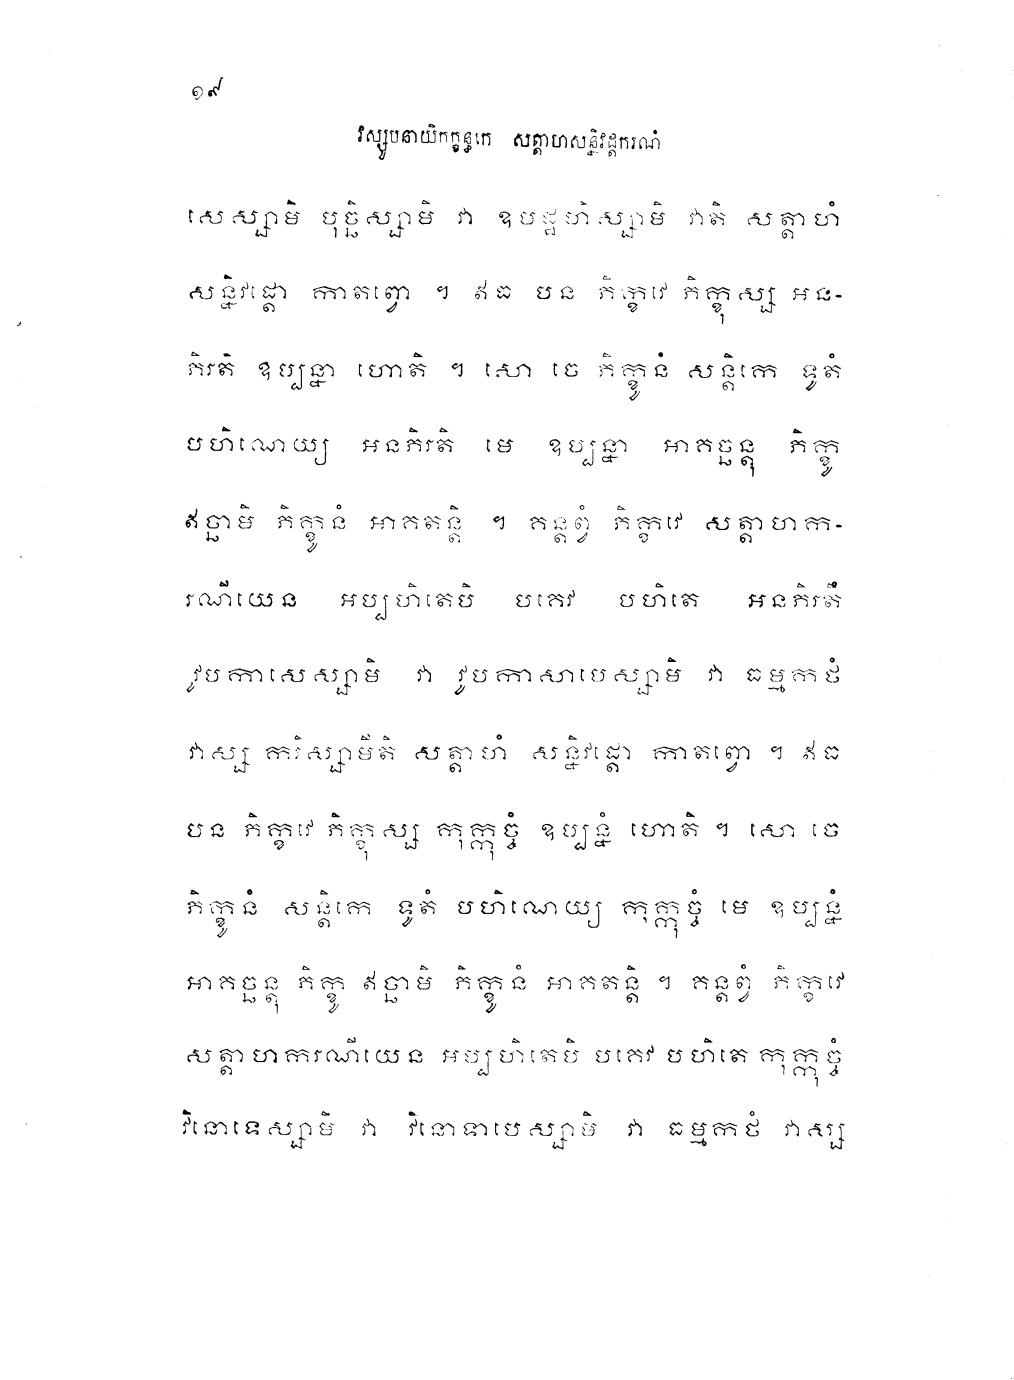 ១៩
វស្សូបនាយិកក្ខន្ធកេ សត្តាហសន្និវដ្តករណំ
សេស្សាមិ បុច្ឆិស្សាមិ វា ឧបដ្ឋហិស្សាមិ វាតិ សត្តាហំ
សន្និវដ្តោ កាតព្វោ ។ ឥធ បន ភិក្ខវេ ភិក្ខុស្ស អន-
ភិរតិ ឧប្បន្នា ហោតិ ។ សោ ចេ ភិក្ខូនំ សន្តិកេ ទូតំ
បហិណេយ្យ អនភិរតិ មេ ឧប្បន្នា អាគច្ឆន្តុ ភិក្ខូ
ឥច្ឆាមិ ភិក្ខូនំ អាគតន្តិ ។ គន្តព្វំ ភិក្ខវេ សត្តាហក-
រណីយេន អប្បហិតេបិ បគេវ បហិតេ អនភិរតឹ
វូបកាសេស្សាមិ វា វូបកាសាបេស្សាមិ វា ធម្មកថំ
វាស្ស ករិស្សាមីតិ សត្តាហំ សន្និវដ្តោ កាតព្វោ ។ ឥធ
បន ភិក្ខវេ ភិក្ខុស្ស កុក្កុច្ចំ ឧប្បន្នំ ហោតិ ។ សោ ចេ
ភិក្ខូនំ សន្តិកេ ទូតំ បហិណេយ្យ កុក្កុច្ចំ មេ ឧប្បន្នំ
អាគច្ឆន្តុ ភិក្ខូ ឥច្ឆាមិ ភិក្ខូនំ អាគតន្តិ ។ គន្តព្វំ ភិក្ខវេ
សត្តាហករណីយេន អប្បហិតេបិ បគេវ បហិតេ កុក្កុច្ចំ
វិនោទេស្សាមិ វា វិនោទាបេស្សាមិ វា ធម្មកថំ វាស្ស